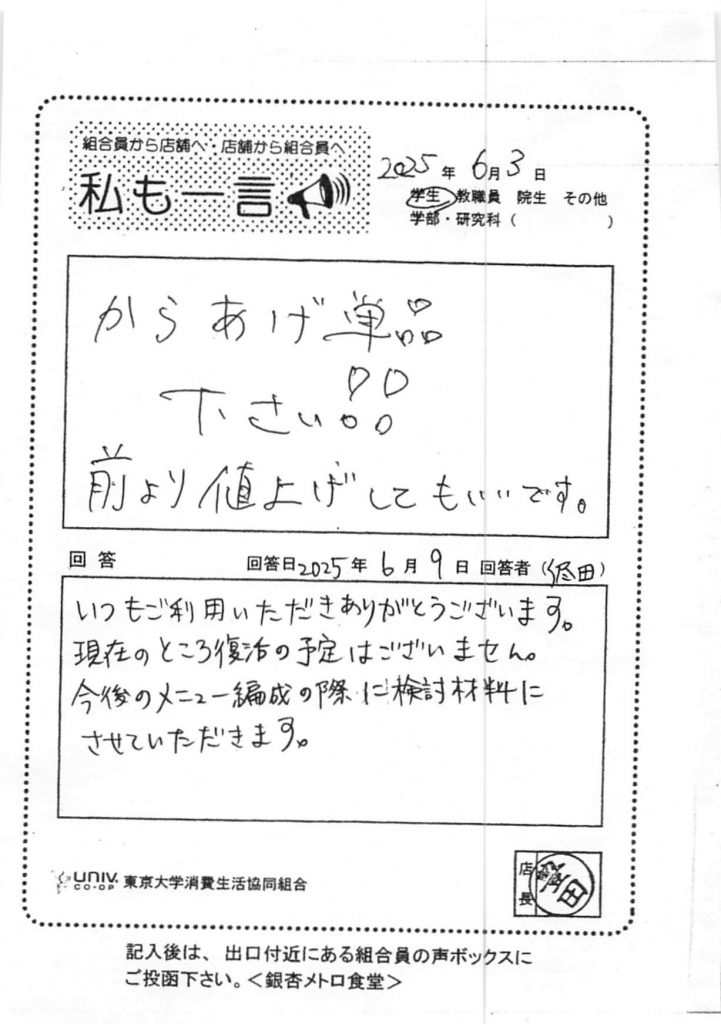 組合員から店舗へ・店舗から組合員へ
私も一言
2025年6月3日
学生 教職員 院生 その他
学部・研究科（ ）
からあげ単品
下さい!!
前より値上げしてもいいです。
回答 回答日2025年6月9日 回答者（経田）
いつもご利用いただきありがとうございます。
現在のところ復活の予定はございません。
今後のメニュー編成の際に検討材料に
させていただきます。
UNIV. CO-OP 東京大学消費生活協同組合
店長 経田
記入後は、出口付近にある組合員の声ボックスに
ご投函下さい。＜銀杏メトロ食堂＞